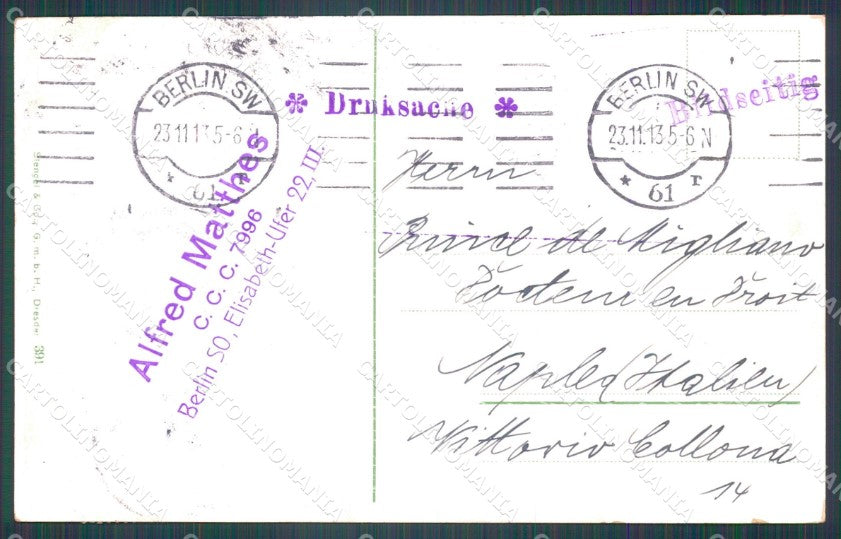 BERLIN SW
23.11.13.5-6N
* 61 r
* Druksache *
BERLIN SW
23.11.13.5-6N
* 61 r
Bildseitig
Alfred Matthes
C. C. C. 7996
Berlin SO, Elisabeth-Ufer 22, III.
Stengel & Co., G. m. b. H., Dresden 391
Herrn
Prince de Migliano
Docteur en Droit
Naples (Italien)
Vittorio Collona
14
CARTOLINOMANIA